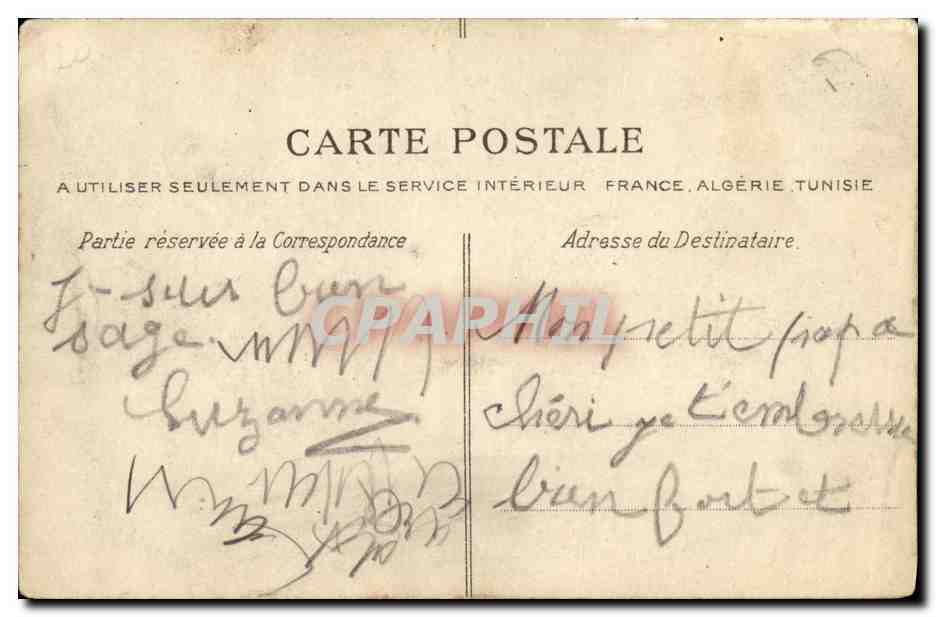 CARTE POSTALE
A UTILISER SEULEMENT DANS LE SERVICE INTÉRIEUR FRANCE, ALGÉRIE, TUNISIE
Partie réservée à la Correspondance
Adresse du Destinataire.
Mon petit papa
chéri je t'embrasse
bien fort et
Je suis bien
sage.
Suzanne
CPAPHIL